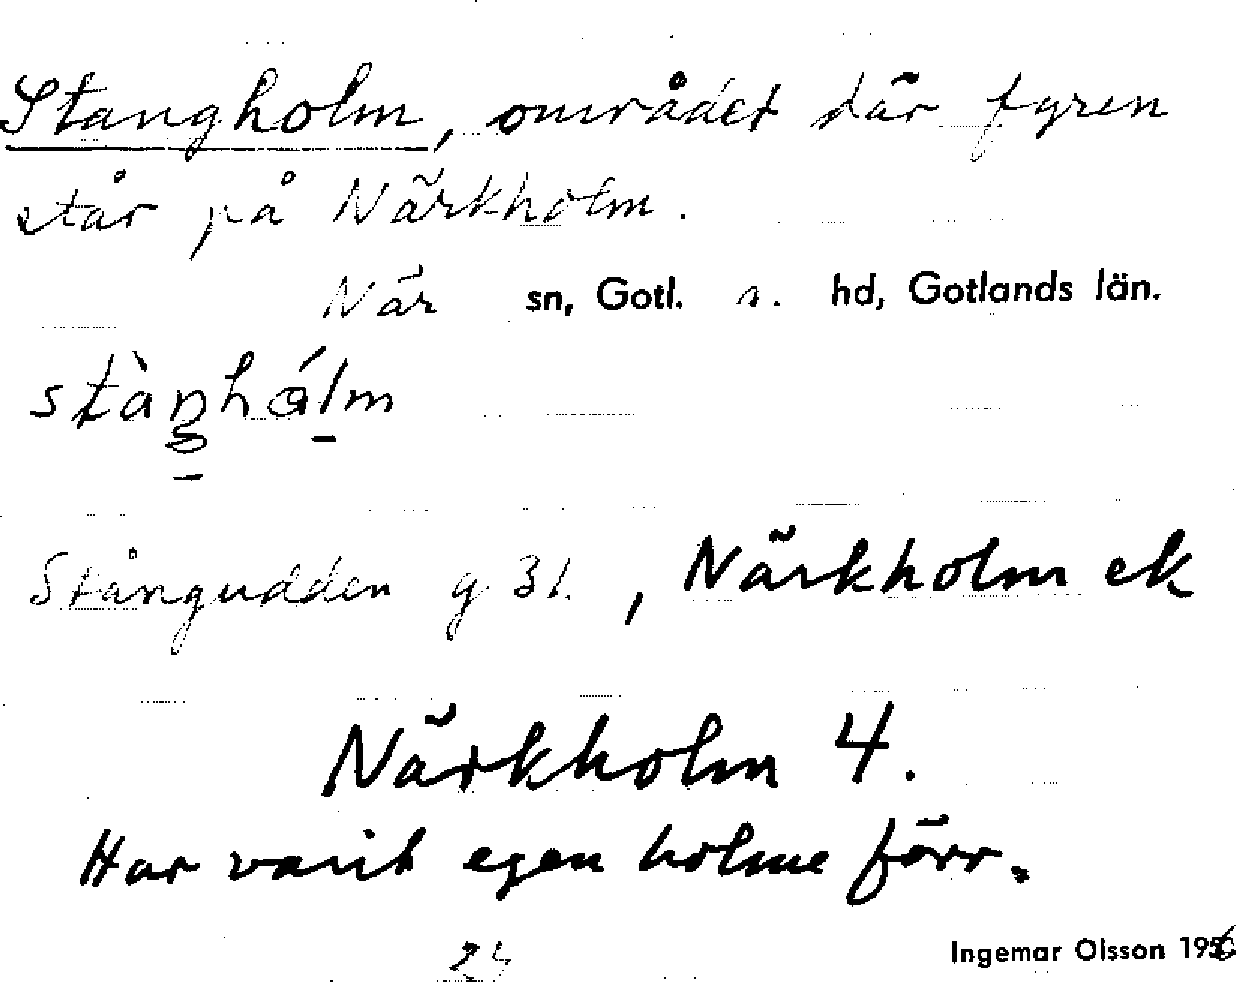 Stangholm, området där fyren
står på Närkholm.
När sn, Gotl. s. hd, Gotlands län.
stàŋhálm
Stångudden g 31. , Närkholm ek
Närkholm 4.
Har varit egen holme förr.
24 Ingemar Olsson 1956